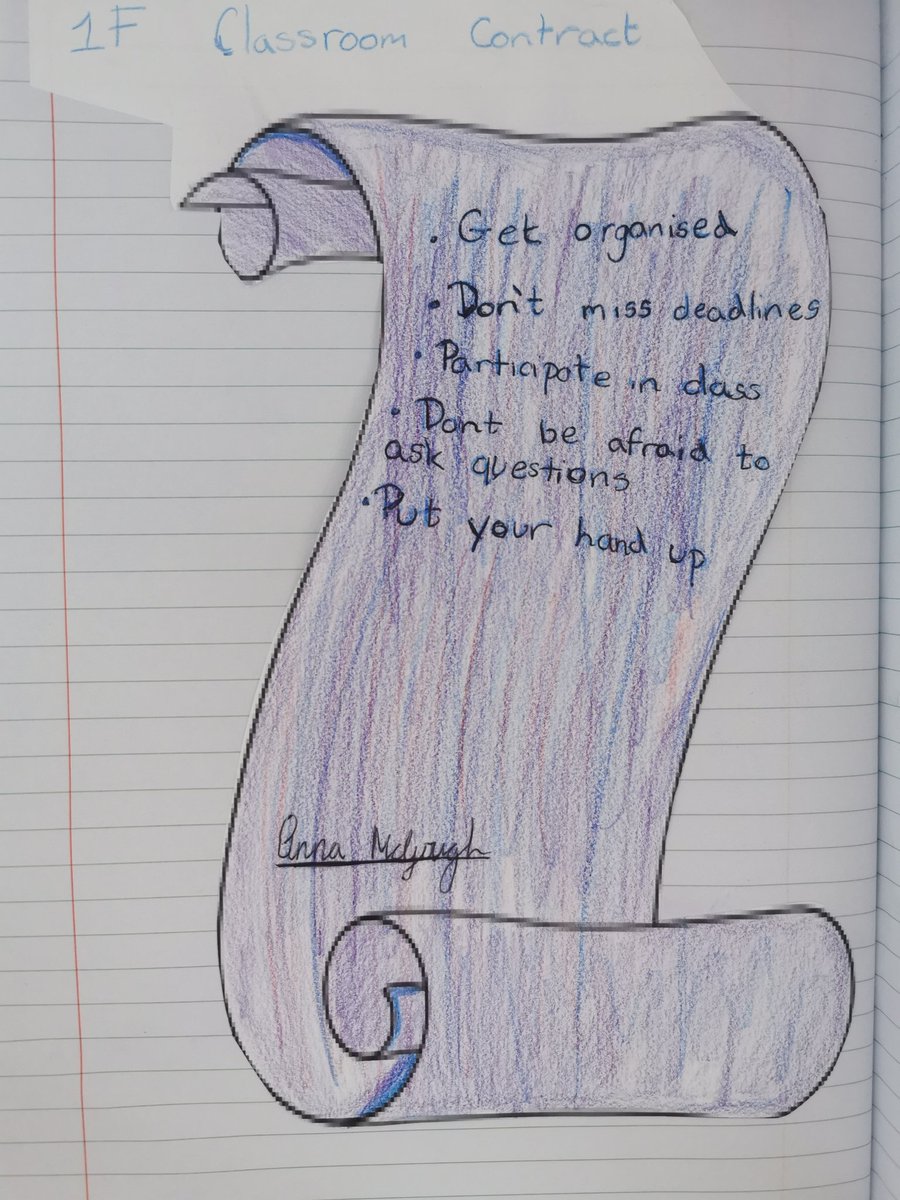 1F Classroom Contract
• Get organised
• Don't miss deadlines
• Participate in class
• Dont be afraid to
ask questions
• Put your hand up
Anna McGough